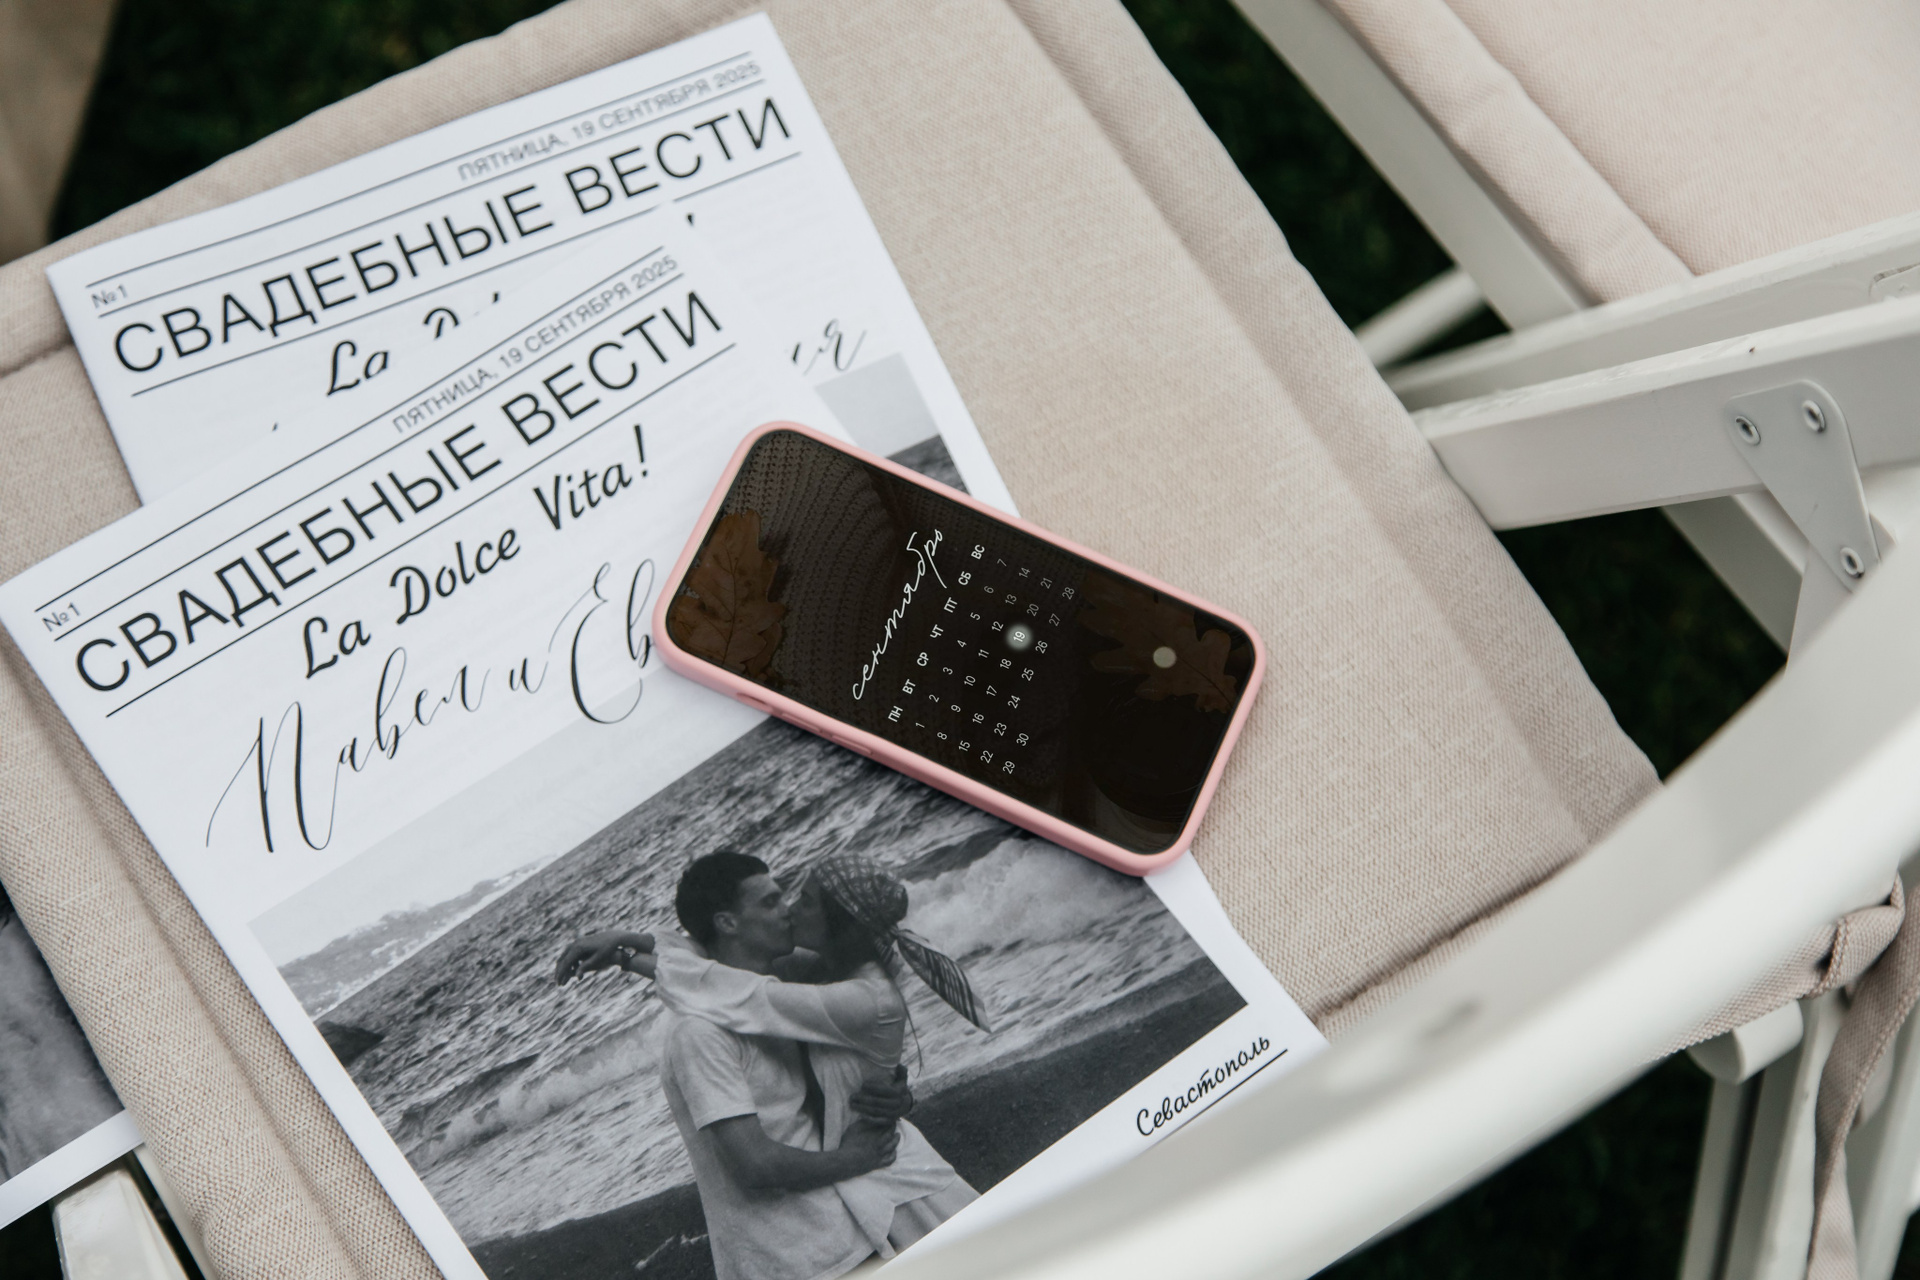 ПЯТНИЦА, 19 СЕНТЯБРЯ 2025
№1
СВАДЕБНЫЕ ВЕСТИ
La
ПЯТНИЦА, 19 СЕНТЯБРЯ 2025
№1
СВАДЕБНЫЕ ВЕСТИ
La Dolce Vita!
Павел и Ев
Севастополь
сентябрь
ПН ВТ СР ЧТ ПТ СБ ВС
1 2 3 4 5 6 7
8 9 10 11 12 13 14
15 16 17 18 19 20 21
22 23 24 25 26 27 28
29 30